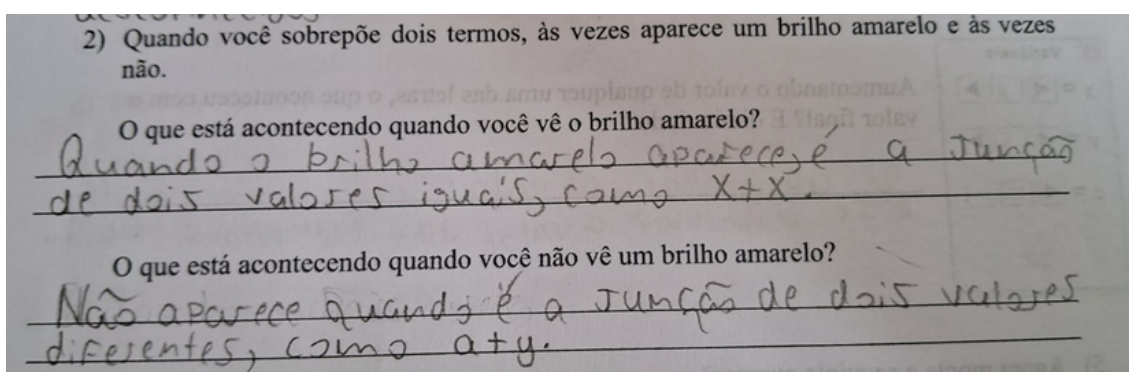 2) Quando você sobrepõe dois termos, às vezes aparece um brilho amarelo e às vezes
não.
O que está acontecendo quando você vê o brilho amarelo?
Quando o brilho amarelo aparece, é a junção
de dois valores iguais, como x+x.
O que está acontecendo quando você não vê um brilho amarelo?
Não aparece quando é a junção de dois valores
diferentes, como a+y.